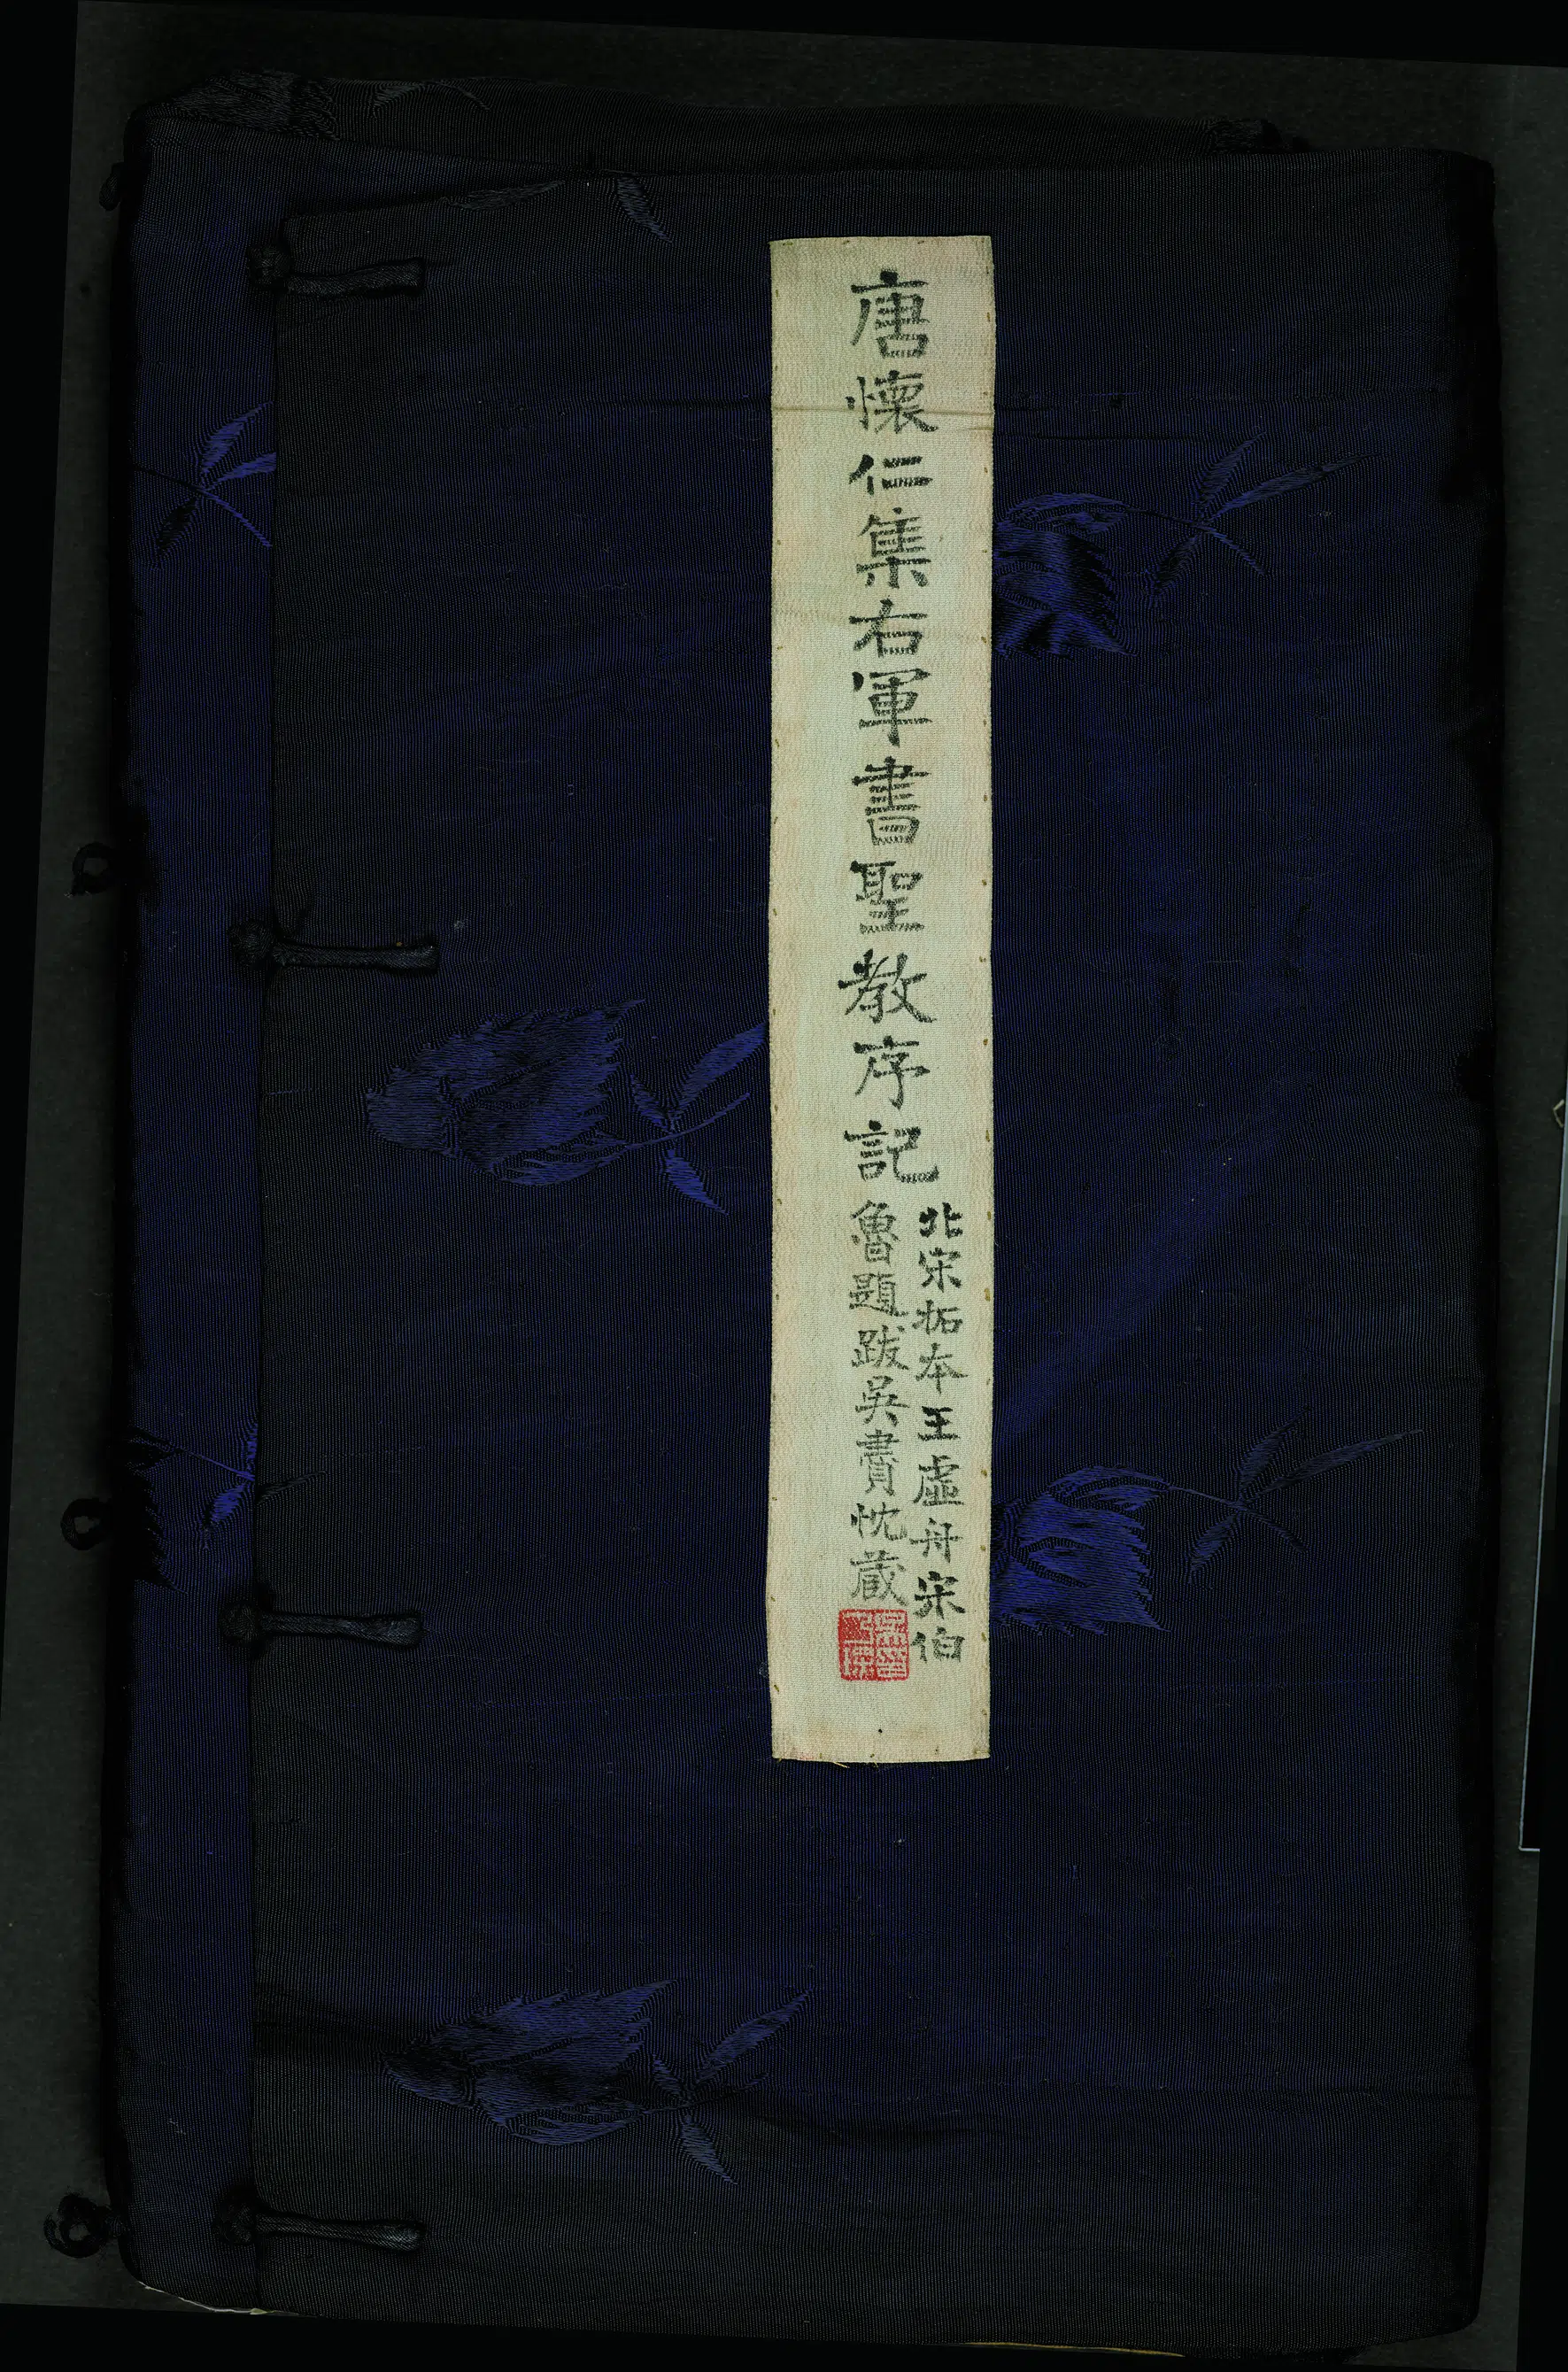 唐懷仁集右軍書聖教序記
北宋拓本王虛舟宋伯
魯題跋吳
忱藏